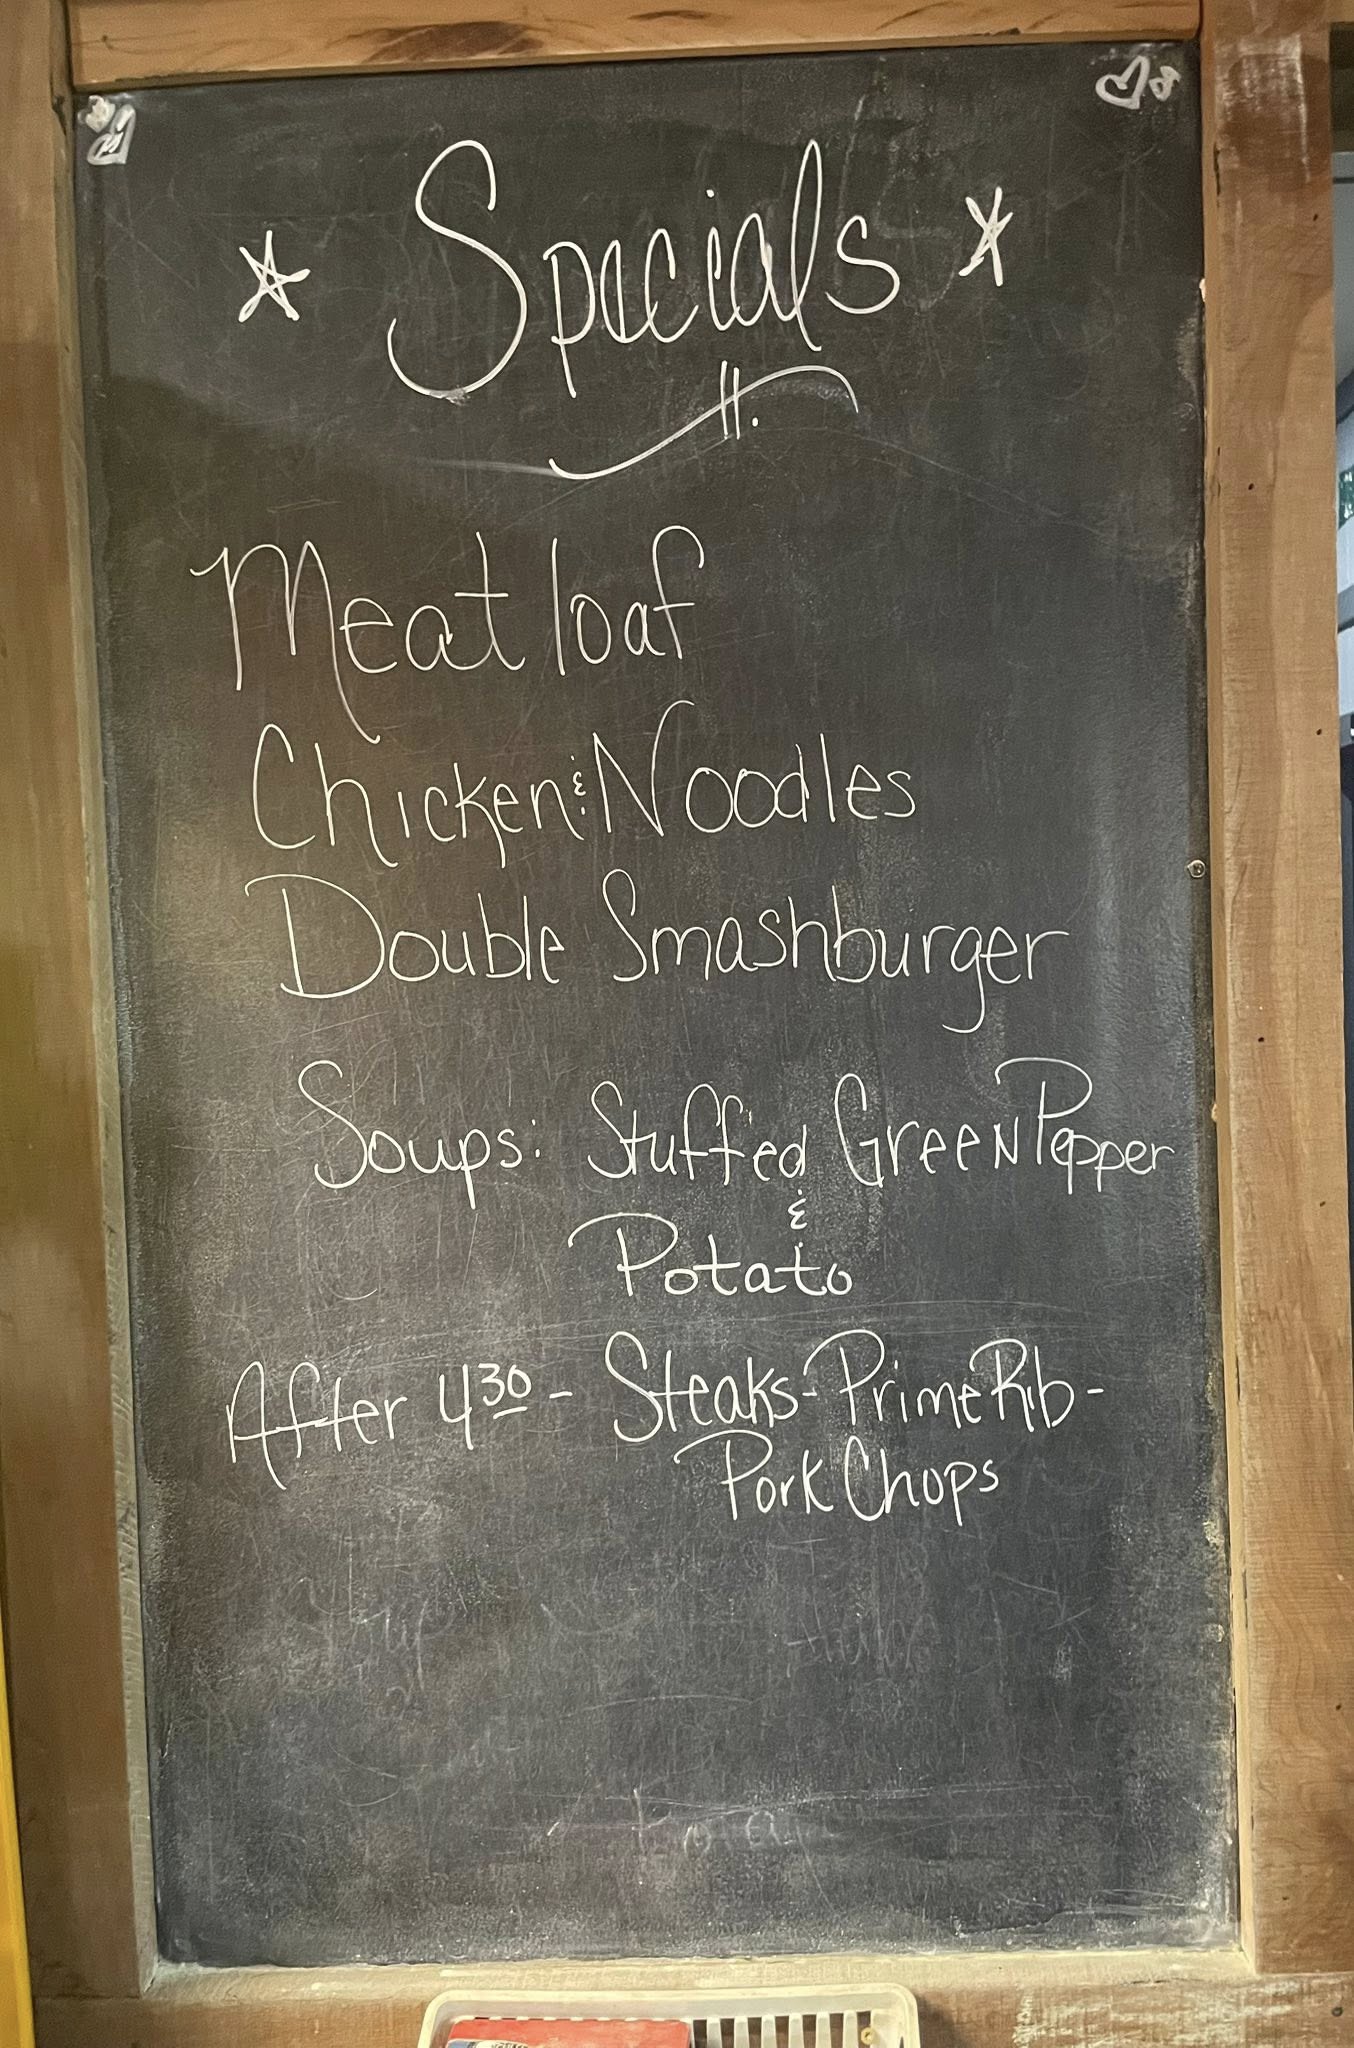 Specials
Meat loaf
Chicken & Noodles
Double Smashburger
Soups: Stuffed Green Pepper
&
Potato
After 4 30 - Steaks - Prime Rib -
Pork Chops